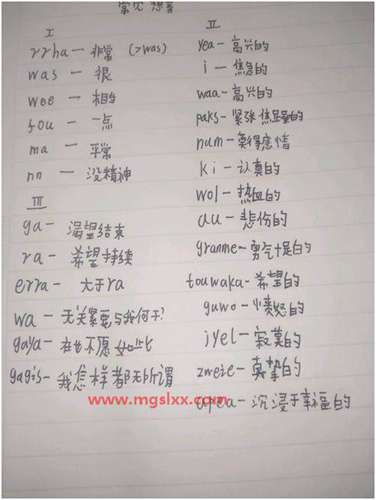 常见想音
I
rrha — 非常 (>was)
was — 很
wee — 相当
fou — 一点
ma — 平常
nn — 没精神
II
yea — 高兴的
i — 焦急的
waa — 高兴的
paks — 紧张焦虑的
num — 莫得感情
ki — 认真的
wol — 热血的
uu — 悲伤的
granme — 勇气十足的
touwaka — 希望的
guwo — 愤怒的
iyel — 寂寞的
zweie — 真挚的
沉浸于幸福的
III
ga — 渴望结束
ra — 希望持续
erra — 大于ra
wa — 无关紧要与我何干?
gaya — 在也不愿如此
gagis — 我怎样都无所谓
www.mgslxx.com